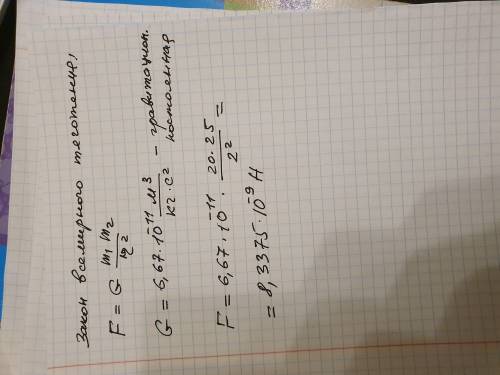 Закон всемирного тяготения:
F = G m₁ m₂ / r²
G = 6,67·10⁻¹¹ м³ / кг·с² – гравитацион.
постоянная
F = 6,67·10⁻¹¹ · 20·25 / 2² =
= 8,3375·10⁻⁹ Н